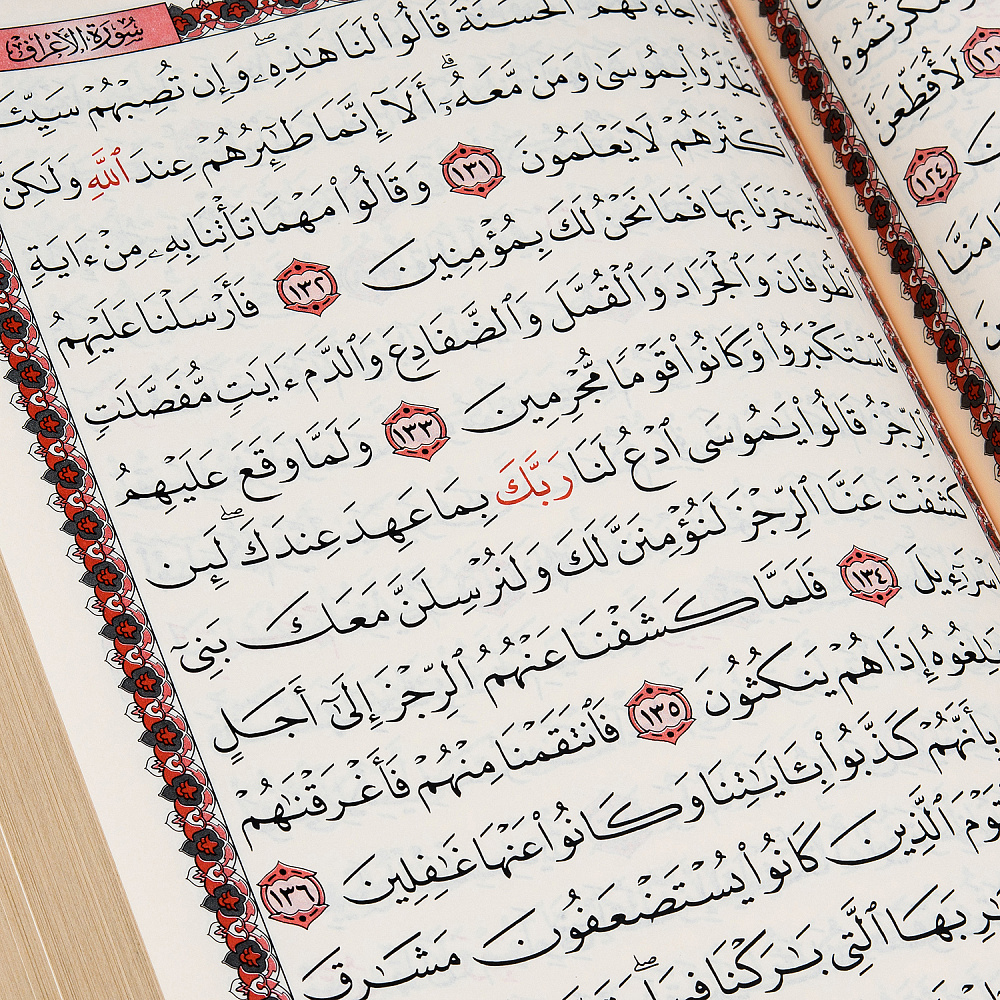 مَّكَرْتُمُوهُ
١٢٣ لَأُقَطِّعَنَّ
١٢٤
مِنَّا
سُورَةُ الأَعْرَافِ
جَآءَتْهُمُ ٱلْحَسَنَةُ قَالُوا۟ لَنَا هَـٰذِهِۦ ۖ وَإِن تُصِبْهُمْ سَيِّئَةٌ
يَطَّيَّرُوا۟ بِمُوسَىٰ وَمَن مَّعَهُۥٓ ۗ أَلَآ إِنَّمَا طَـٰٓئِرُهُمْ عِندَ ٱللَّهِ وَلَـٰكِنَّ
أَكْثَرَهُمْ لَا يَعْلَمُونَ ١٣١ وَقَالُوا۟ مَهْمَا تَأْتِنَا بِهِۦ مِنْ ءَايَةٍ
لِّتَسْحَرَنَا بِهَا فَمَا نَحْنُ لَكَ بِمُؤْمِنِينَ ١٣٢ فَأَرْسَلْنَا عَلَيْهِمُ
ٱلطُّوفَانَ وَٱلْجَرَادَ وَٱلْقُمَّلَ وَٱلضَّفَادِعَ وَٱلدَّمَ ءَايَـٰتٍ مُّفَصَّلَـٰتٍ
فَٱسْتَكْبَرُوا۟ وَكَانُوا۟ قَوْمًا مُّجْرِمِينَ ١٣٣ وَلَمَّا وَقَعَ عَلَيْهِمُ
ٱلرِّجْزُ قَالُوا۟ يَـٰمُوسَى ٱدْعُ لَنَا رَبَّكَ بِمَا عَهِدَ عِندَكَ ۖ لَئِن
كَشَفْتَ عَنَّا ٱلرِّجْزَ لَنُؤْمِنَنَّ لَكَ وَلَنُرْسِلَنَّ مَعَكَ بَنِىٓ
إِسْرَٰٓءِيلَ ١٣٤ فَلَمَّا كَشَفْنَا عَنْهُمُ ٱلرِّجْزَ إِلَىٰٓ أَجَلٍ
بَـٰلِغُوهُ إِذَا هُمْ يَنكُثُونَ ١٣٥ فَٱنتَقَمْنَا مِنْهُمْ فَأَغْرَقْنَـٰهُمْ
بِأَنَّهُمْ كَذَّبُوا۟ بِـَٔايَـٰتِنَا وَكَانُوا۟ عَنْهَا غَـٰفِلِينَ ١٣٦
ٱلْقَوْمَ ٱلَّذِينَ كَانُوا۟ يُسْتَضْعَفُونَ مَشَـٰرِقَ
بِهَا ٱلَّتِى بَـٰرَكْنَا فِيهَا ۖ